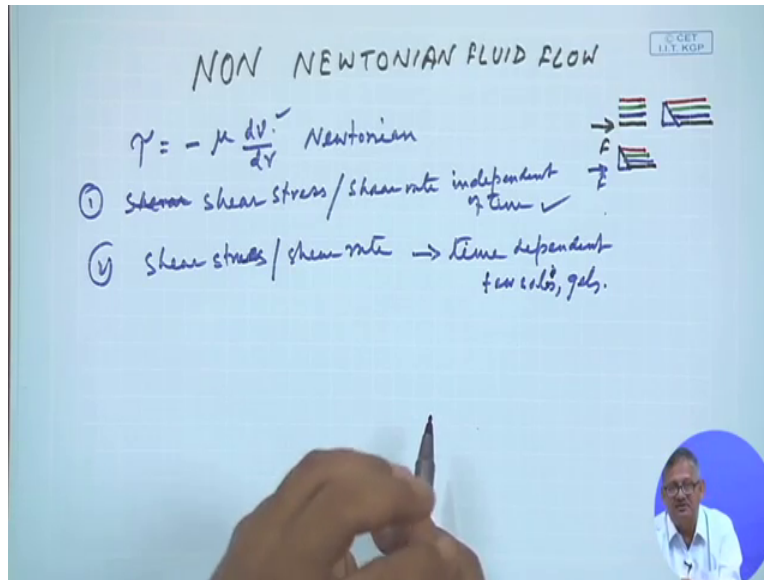 © CET
I.I.T. KGP
NON NEWTONIAN FLUID FLOW
τ = - μ dv/dr Newtonian
F
① shear stress/shear rate independent
of time ✓
F
shear stress/shear rate → time dependent
few sols, gels.